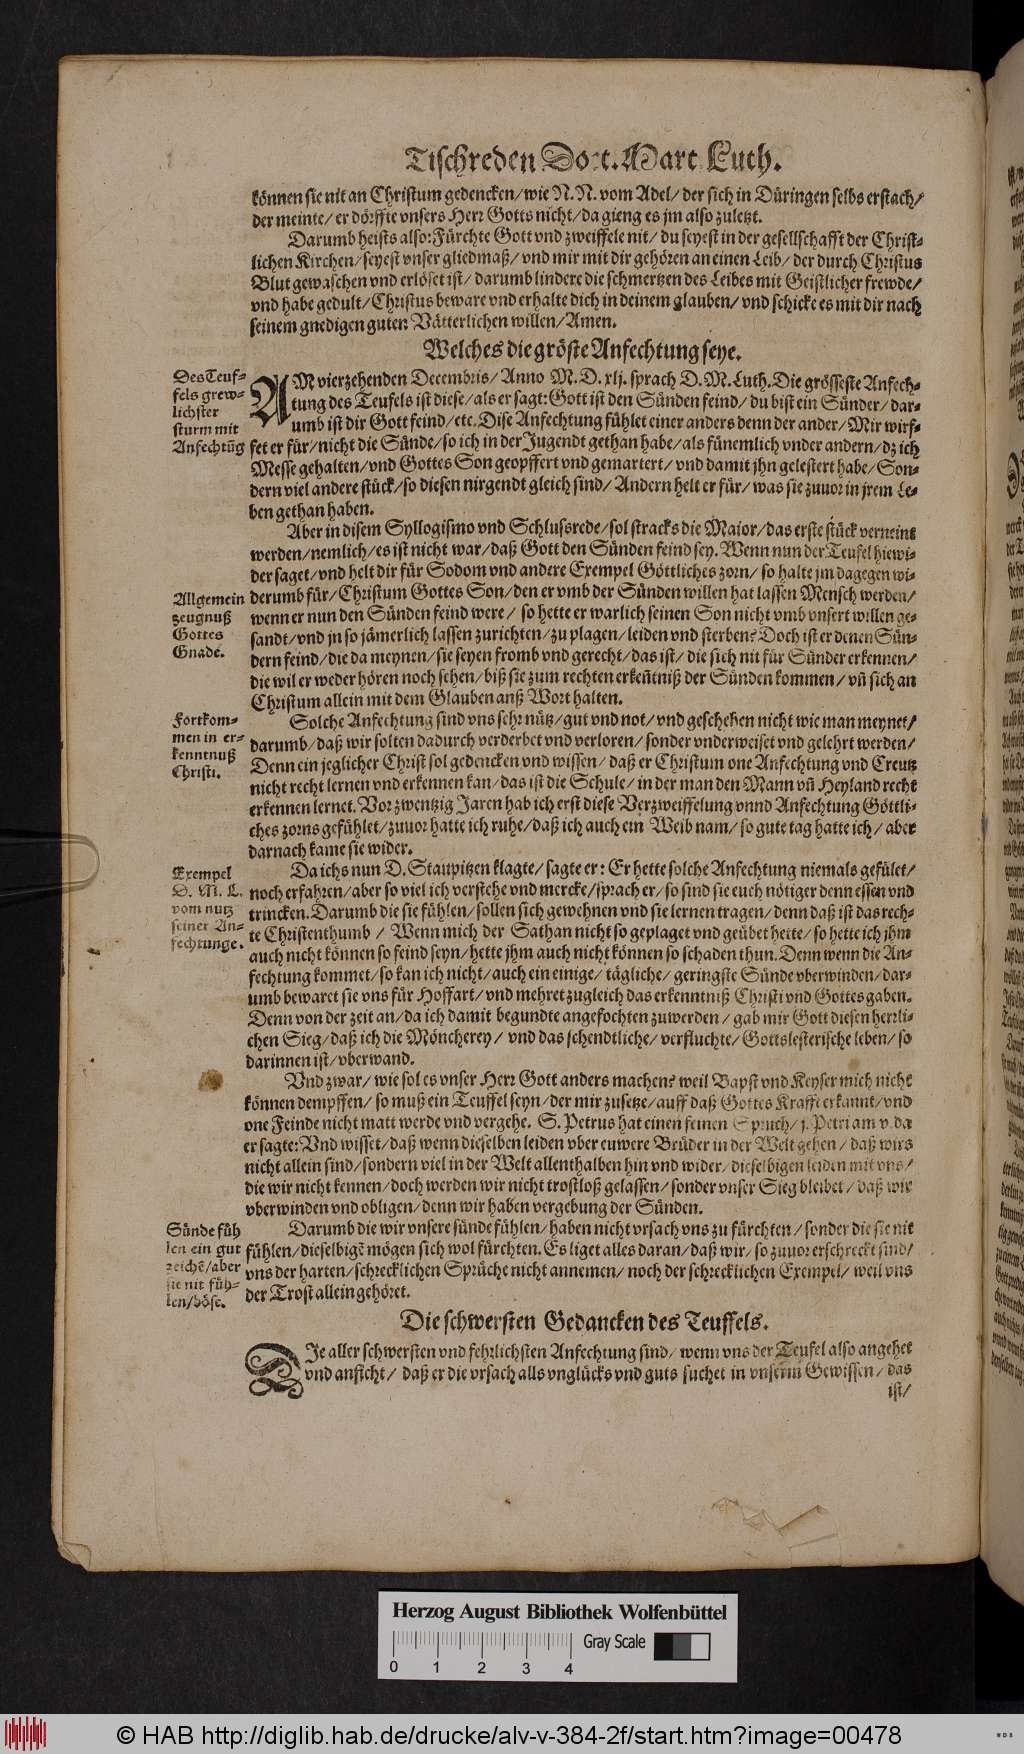 Tischreden Doct. Mart Luth.
können sie nit an Christum gedencken/ wie N. N. vom Adel/ der sich in Düringen selbs erstach/
der meinte/ er dörffte vnsers Herr Gotts nicht/ da gieng es jm also zuletzt.
Darumb heists also: Fürchte Gott vnd zweiffele nit/ du seyest in der gesellschafft der Christ-
lichen Kirchen/ seyest vnser gliedmaß/ vnd mir mit dir gehören an einen Leib/ der durch Christus
Blut gewaschen vnd erlöset ist/ darumb lindere die schmertzen des Leibes mit Geistlicher frewde/
vnd habe gedult/ Christus beware vnd erhalte dich in deinem glauben/ vnd schicke es mit dir nach
seinem gnedigen guten Vätterlichen willen/ Amen.
Welches die gröste Anfechtung seye.
Des Teuf-
fels grew-
lichster
sturm mit
Anfechtūg
AM vierzehenden Decembris/ Anno M. D. xlj. sprach D. M. Luth. Die grösseste Anfech-
tung des Teufels ist diese/ als er sagt: Gott ist den Sünden feind/ du bist ein Sünder/ dar-
umb ist dir Gott feind/ etc. Dise Anfechtung fühlet einer anders denn der ander/ Mir wirf-
fet er für/ nicht die Sünde/ so ich in der Jugendt gethan habe/ als fünemlich vnder andern/ dz ich
Messe gehalten/ vnd Gottes Son geopffert vnd gemartert/ vnd damit jhn gelestert habe/ Son-
dern viel andere stück/ so diesen nirgendt gleich sind/ Andern helt er für/ was sie zuuor in jrem Le-
ben gethan haben.
Aber in disem Syllogismo vnd Schlussrede/ sol stracks die Maior/ das erste stück verneint
werden/ nemlich/ es ist nicht war/ daß Gott den Sünden feind sey. Wenn nun der Teufel hiewi-
der saget/ vnd helt dir für Sodom vnd andere Exempel Göttliches zorn/ so halte jm dagegen wi-
Allgemein
zeugnuß
Gottes
Gnade.
derumb für/ Christum Gottes Son/ den er vmb der Sünden willen hat lassen Mensch werden/
wenn er nun den Sünden feind were/ so hette er warlich seinen Son nicht vmb vnsert willen ge-
sandt/ vnd jn so jämerlich lassen zurichten/ zu plagen/ leiden vnd sterben? Doch ist er denen Sün-
dern feind/ die da meynen/ sie seyen fromb vnd gerecht/ das ist/ die sich nit für Sünder erkennen/
die wil er weder hören noch sehen/ biß sie zum rechten erkeñtniß der Sünden kommen/ vñ sich an
Christum allein mit dem Glauben anß Wort halten.
Fortkom-
men in er-
kenntnuß
Christi.
Solche Anfechtung sind vns sehr nütz/ gut vnd not/ vnd geschehen nicht wie man meynet/
darumb/ daß wir solten dadurch verderbet vnd verloren/ sonder vnderweiset vnd gelehrt werden/
Denn ein jeglicher Christ sol gedencken vnd wissen/ daß er Christum one Anfechtung vnd Creutz
nicht recht lernen vnd erkennen kan/ das ist die Schule/ in der man den Mann vñ Heyland recht
erkennen lernet. Vor zwentzig Jaren hab ich erst diese Verzweiffelung vnnd Anfechtung Göttli-
ches zorns gefühlet/ zuuor hatte ich ruhe/ daß ich auch ein Weib nam/ so gute tag hatte ich/ aber
darnach kame sie wider.
Exempel
D. M. L.
vom nutz
seiner An-
fechtunge.
Da ichs nun D. Staupitzen klagte/ sagte er: Er hette solche Anfechtung niemals gefület/
noch erfahren/ aber so viel ich verstehe vnd mercke/ sprach er/ so sind sie euch nötiger denn essen vnd
trincken. Darumb die sie fühlen/ sollen sich gewehnen vnd sie lernen tragen/ denn daß ist das rech-
te Christenthumb/ Wenn mich der Sathan nicht so geplaget vnd geübet hette/ so hette ich jhm
auch nicht können so feind seyn/ hette jhm auch nicht können so schaden thun. Denn wenn die An-
fechtung kommet/ so kan ich nicht/ auch ein einige/ tägliche/ geringste Sünde vberwinden/ dar-
umb bewaret sie vns für Hoffart/ vnd mehret zugleich das erkenntniß Christi vnd Gottes gaben.
Denn von der zeit an/ da ich damit begundte angefochten zuwerden/ gab mir Gott diesen herrli-
chen Sieg/ daß ich die Möncherey/ vnd das schendtliche/ verfluchte/ Gottslesterische leben/ so
darinnen ist/ vberwand.
Vnd zwar/ wie sol es vnser Herr Gott anders machen? weil Bapst vnd Keyser mich nicht
können dempffen/ so muß ein Teuffel seyn/ der mir zusetze/ auff daß Gottes Krafft erkannt/ vnd
one Feinde nicht matt werde vnd vergehe. S. Petrus hat einen feinen Spruch/ j. Petri am v. da
er sagte: Vnd wisset/ daß wenn dieselben leiden vber euwere Brüder in der Welt gehen/ daß wirs
nicht allein sind/ sondern viel in der Welt allenthalben hin vnd wider/ dieselbigen leiden mit vns/
die wir nicht kennen/ doch werden wir nicht trostloß gelassen/ sonder vnser Sieg bleibet/ daß wir
vberwinden vnd obligen/ denn wir haben vergebung der Sünden.
Sünde füh
len ein gut
zeichē/ aber
sie nit füh-
len/ böse.
Darumb die wir vnsere sünde fühlen/ haben nicht vrsach vns zu fürchten/ sonder die sie nit
fühlen/ dieselbigē mögen sich wol fürchten. Es liget alles daran/ daß wir/ so zuuor erschreckt sind/
vns der harten/ schrecklichen Sprüche nicht annemen/ noch der schrecklichen Exempel/ weil vns
der Trost allein gehöret.
Die schwersten Gedancken des Teuffels.
DJe aller schwersten vnd fehrlichsten Anfechtung sind/ wenn vns der Teufel also angehet
vnd anficht/ daß er die vrsach alls vnglücks vnd guts suchet in vnserm Gewissen/ das
ist/
Herzog August Bibliothek Wolfenbüttel
Gray Scale
0 1 2 3 4
© HAB http://diglib.hab.de/drucke/alv-v-384-2f/start.htm?image=00478